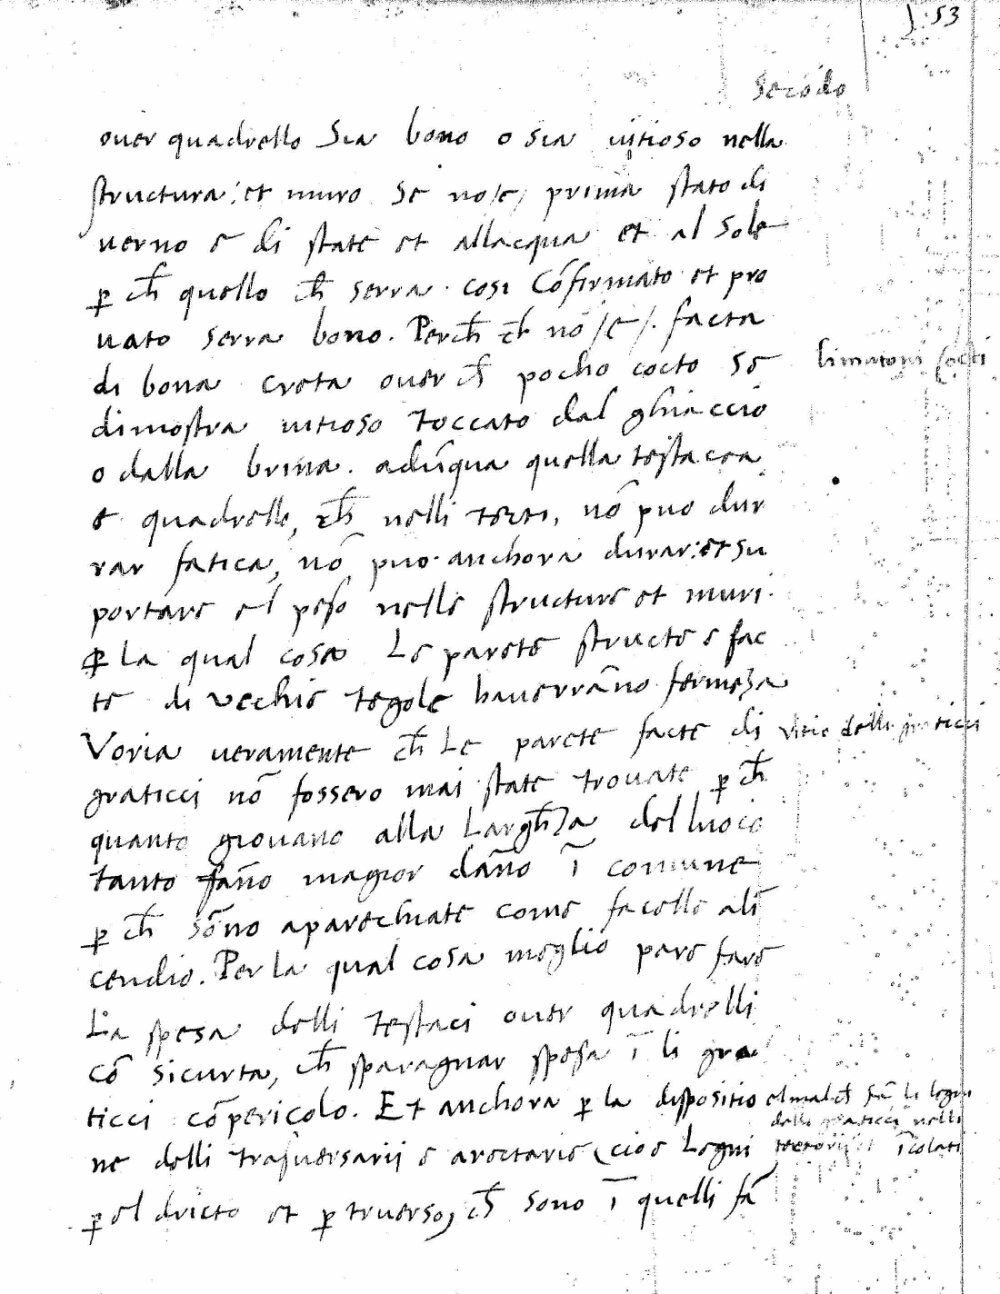 f. 53
Secōdo
over quadrello Sia bono o sia vitioso nella
structura; et muro se no /e/ prima stato di
verno e di state et allacqua et al Sole
p ch̄ quello ch̄ serra cosi Cōfirmato et pro
vato serra bono. Perch̄ ch̄ nō /e/. facta
di bona creta over ch̄ pocho cocto se
dimostra vitioso Toccato dal ghiaccio
o dalla brina. adūqua quella testacea
e quadrello, ch̄ nelli tecti, nō puo dur
rar fatica, nō puo anchora durar: et su
portare el peso nelle structure et muri.
p La qual cosa Le parete structe e fac
te di vechie tegole haverrāno fermeza
Voria veramente ch̄ Le parete facte di
graticci nō fossero mai state trovate p ch̄
quanto giovano alla Largh̄za del luoco
tanto fāno magior dāno ī comune
p ch̄ sōno aparechiate come facelle alī
cendio. Per la qual cosa meglio pare fare
La spesa delli Testaci over quadrelli
cō sicurta, ch̄ sparagnar spesa ī li gra
ticci cō pericolo. Et anchora p la dispositio
ne delli trasversarii e arectarie (cioe Legni
p el dricto et p truerso) ch̄ sono ī quelli fā
cocti
vitio delli graticci
el mal ch̄ fā li legni
delli graticci nelli
tectorij īcolati